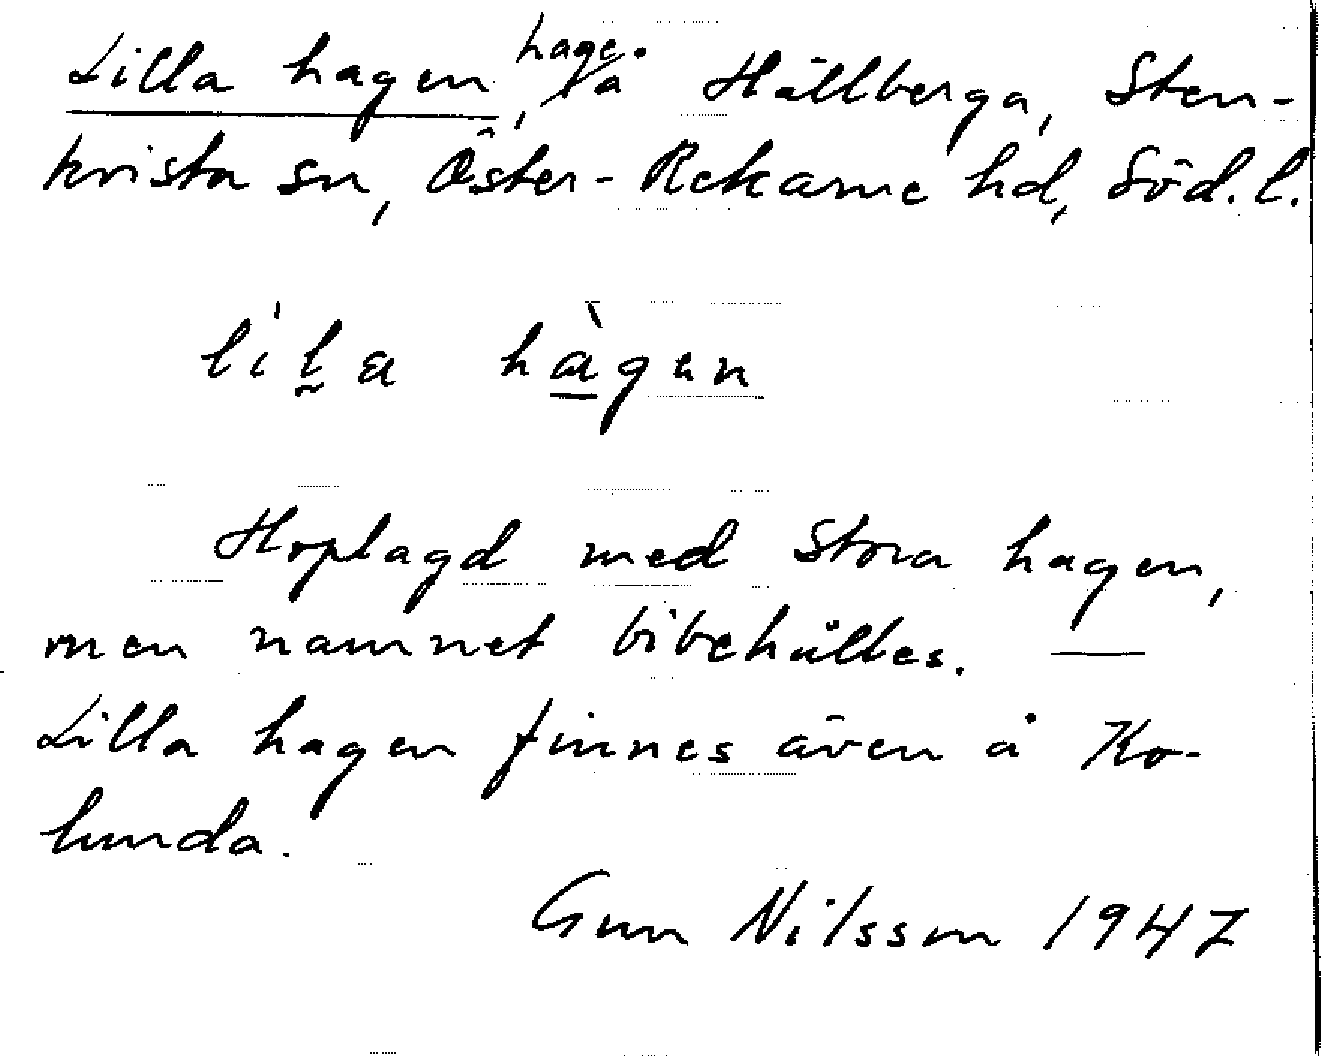 Lilla hagen, hage, å Hällberga, Sten-
kvista sn, Öster-Rekarne hd, Söd. l.
li̍l̰a hàgen
Hoplagd med Stora hagen,
men namnet bibehålles. —
Lilla hagen finnes även å Ko-
lunda.
Gun Nilsson 1947